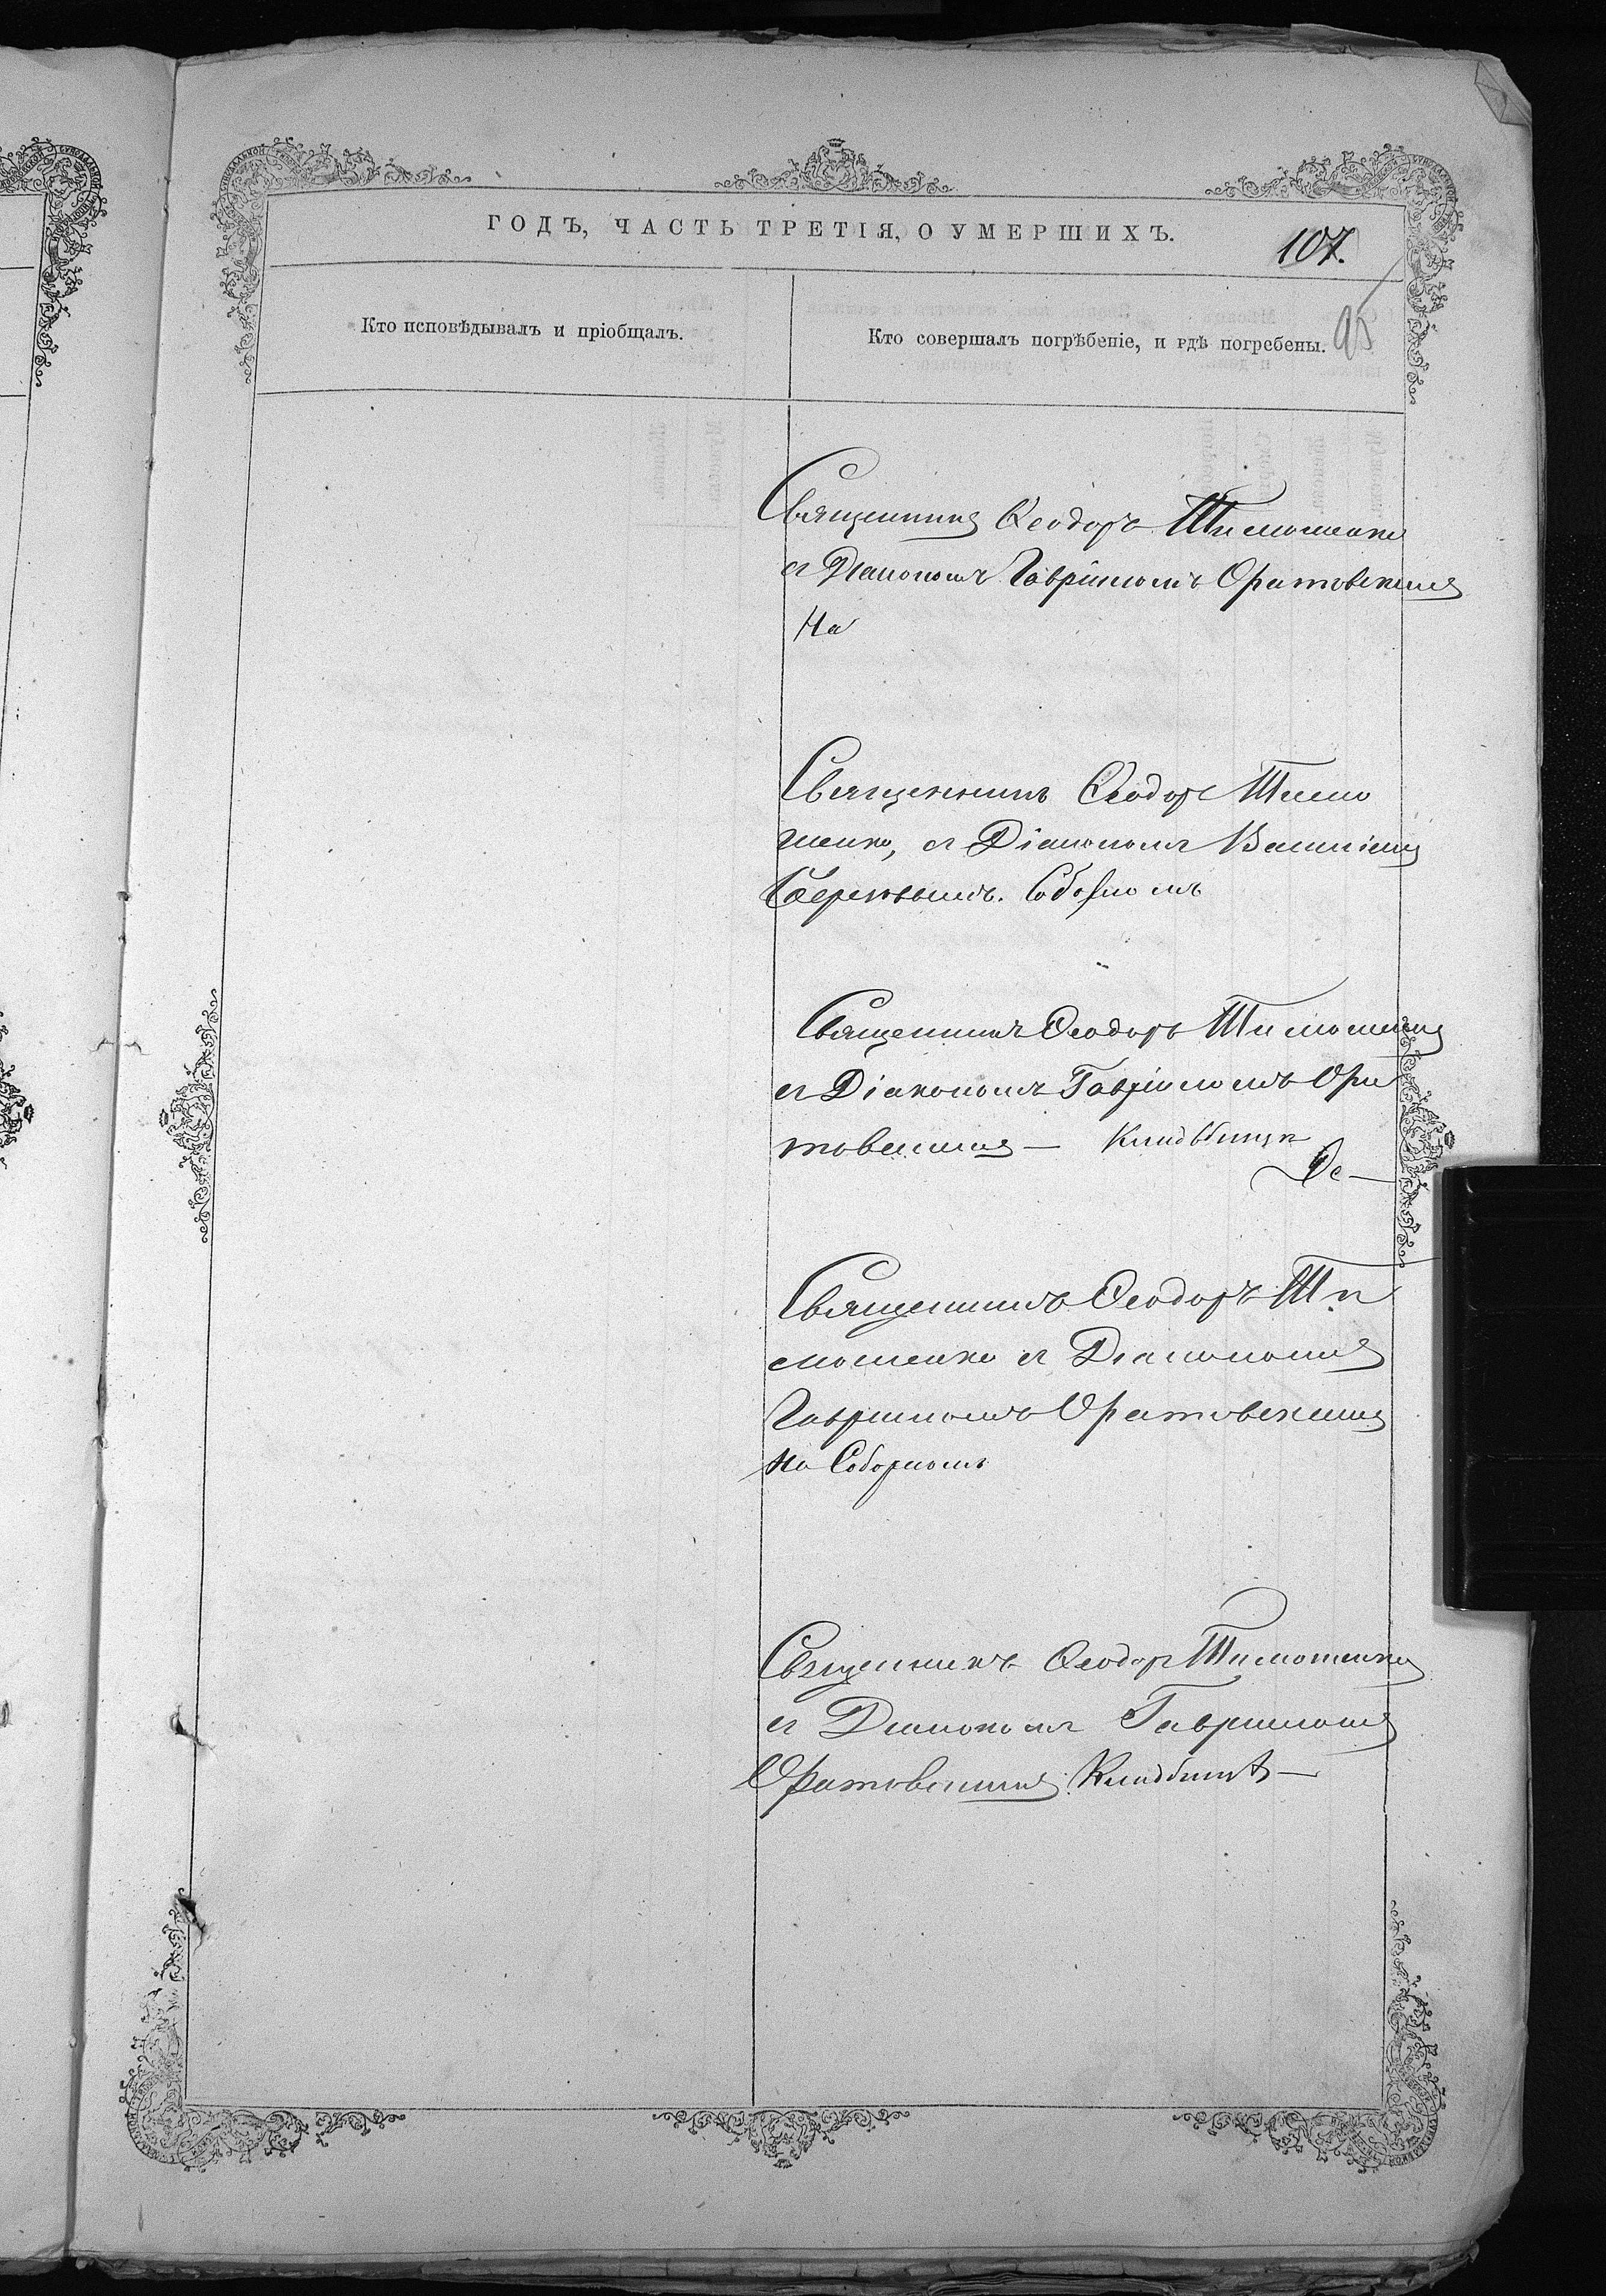 ГОДЪ, ЧАСТЬ ТРЕТІЯ, О УМЕРШИХЪ.
107.
95
Кто исповѣдывалъ и пріобщалъ.
Кто совершалъ погрѣбеніе, и гдѣ погребены.
Священникъ Ѳеодоръ Тимошенко
съ Діакономъ Гавріиломъ Оратовскимъ
На
Священникъ Ѳеодоръ Тимо
шенко, съ Діакономъ Василіемъ
Соборномъ
Священникъ Ѳеодоръ Тимошенко
съ Діакономъ Гавріиломъ Ора
товскимъ — Кладбищѣ
Священникъ Ѳеодоръ Ти
мошенко съ Діакономъ
Гавріиломъ Оратовскимъ
на Соборномъ
Священникъ Ѳеодоръ Тимошенко
съ Діакономъ Гавріиломъ
Оратовскимъ Кладбищѣ —